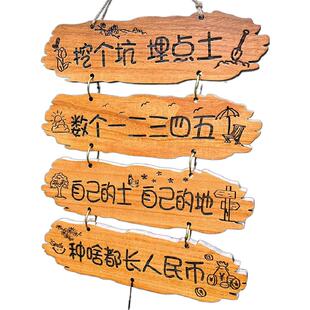 挖个坑 埋点土
数个一二三四五
自己的土 自己的地
种啥都长人民币